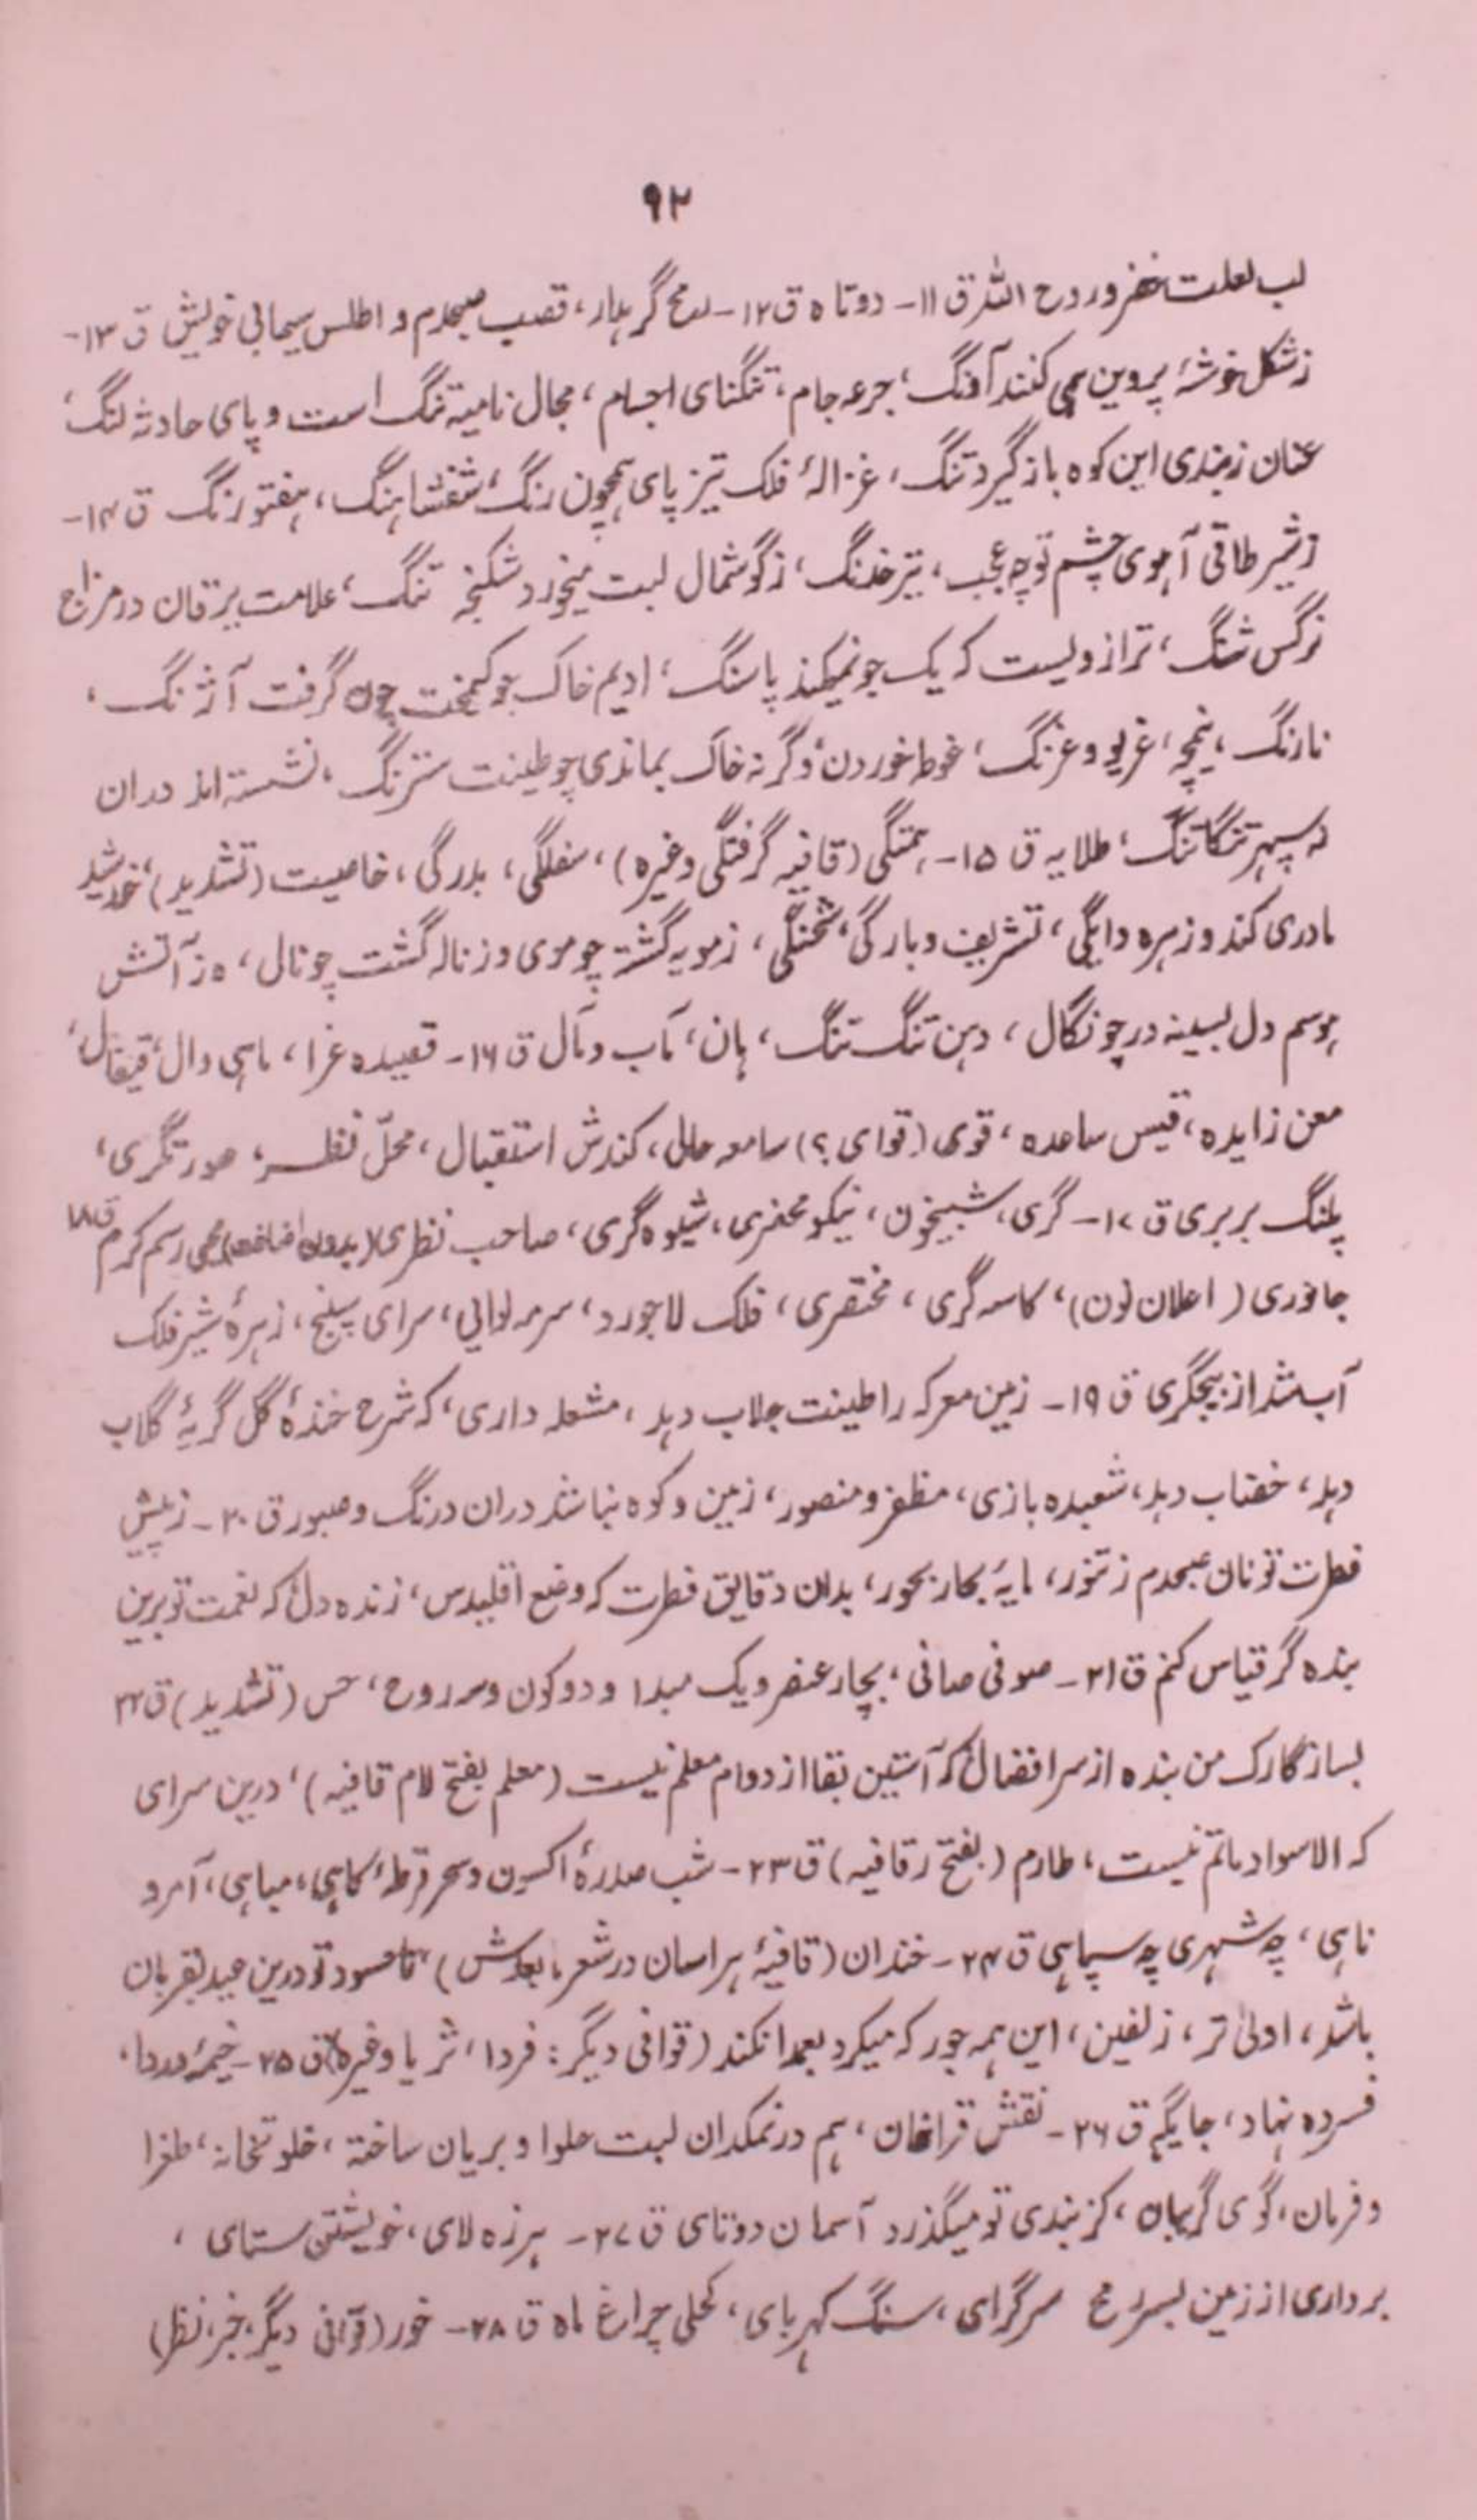 ۹۲
لب لعلت خضر و روح اللہ ق ۱۱- دوتاہ ق ۱۲- رمح گرہدار، قصب صبحدم و اطلس سیمابی خویش ق ۱۳-
ز شکل خوشۂ پروین ہمی کنند آونگ، جرعہ جام، تنگنای اجسام، مجال نامیہ تنگ است و پای حادثہ لنگ،
عنان ز بندی این کوہ باز گیرد تنگ، غزالۂ فلک تیز پای ہمچون رنگ، شفشاہنگ، ہفتورنگ ق ۱۴-
ز شیر طاقی آہوی چشم تو چہ عجب، تیر خدنگ، ز گوشمال لبت میخورد شکنجہ تنگ، علامت یرقان در مزاج
نرگس شنگ، ترازویست کہ یک جو نمیکند پاسنگ، ادیم خاک چو کیمخت چون گرفت آژنگ،
نارنگ، نیمچہ، غریو و غرنگ، غوطہ خوردن، وگرنہ خاک بماندی چو طینت سترنگ، نشستہ اند دران
نہ سپہر تنگاتنگ، طلایہ ق ۱۵- ہمتگی (قافیہ گرفتگی وغیرہ)، سفلگی، بدرگی، خاصیت (تشدید)، خورشید
مادری کند و زہرہ دایگی، تشریف و بارگی، شحنگی، ز مویہ گشتہ چو موی و ز نالہ گشت چو نال، ہ ز آتش
ہوسم دل بسینہ در چو نگال، دہن تنگ تنگ، ہان، مآب و مآل ق ۱۶- قصیدہ غرا، ماہی دال، قیفال،
معن زایدہ، قیس ساعدہ، قوی (قوای ؟) سامعہ حال، کندش استقبال، محلّ نظر، صورتگری،
پلنگ بربری ق ۱۷- گری، شبیخون، نیکو محضری، شیوہ گری، صاحب نظری (بدون اضافت) محیی رسم کرم ق ۱۸
جانوری (اعلان نون)، کاسہ گری، مختصری، فلک لاجورد، سرمہ لوایی، سرای سپنج، زہرۂ شیر فلک
آب شد از بیجگری ق ۱۹- زمین معرکہ را طینت جلاب دہد، مشعلہ داری، کہ شرح خندۂ گل گریۂ گلاب
دہد، خضاب دہد، شعبدہ بازی، مظفر و منصور، زمین و کوہ نباشد دران درنگ و صبور ق ۲۰- ز پیش
فطرت تو نان صبحدم ز تنور، مایۂ بحار بحور، بدان دقایق فطرت کہ وضع اقلیدس، زندہ دل، کہ نعمت تو برین
بندہ گر قیاس کنم ق ۲۱- صوفی صافی، بچار عنصر و یک مبدا و دو کون و سہ روح، حس (تشدید) ق ۲۲
بساز گارک من بندہ از سر افضال، کہ آستین بقا از دوام معلم نیست (معلم بفتح لام قافیہ)، درین سرای
کہ الا سواد ماتم نیست، طارم (بفتح ر قافیہ) ق ۲۳- شب صدرۂ اکسون و سحر قرطۂ کاہی، مباہی، آمر و
ناہی، چہ شہری چہ سپاہی ق ۲۴- خندان (قافیۂ ہراسان در شعر مابعدش)، تا حسود تو درین عید بقربان
باشد، اولیٰ تر، زلفین، این ہمہ جور کہ میکرد بعمدا نکند (قوافی دیگر: فردا، ثریا وغیرہ) ق ۲۵- خیمۂ
فسردہ نہاد، جایگہ ق ۲۶- نقش قراخان، ہم در نمکدان لبت حلوا و بریان ساختہ، خلوتخانہ، طغرا
و فرمان، گوی گریبان، کز بندی تو میگذرد آسمان دوتای ق ۲۷- ہرزہ لای، خویشتن ستای،
برداری از زمین بسر رمح سرگرای، سنگ کہربای، کحلی چراغ ماہ ق ۲۸- خور (قوافی دیگر، خبر، نظر)